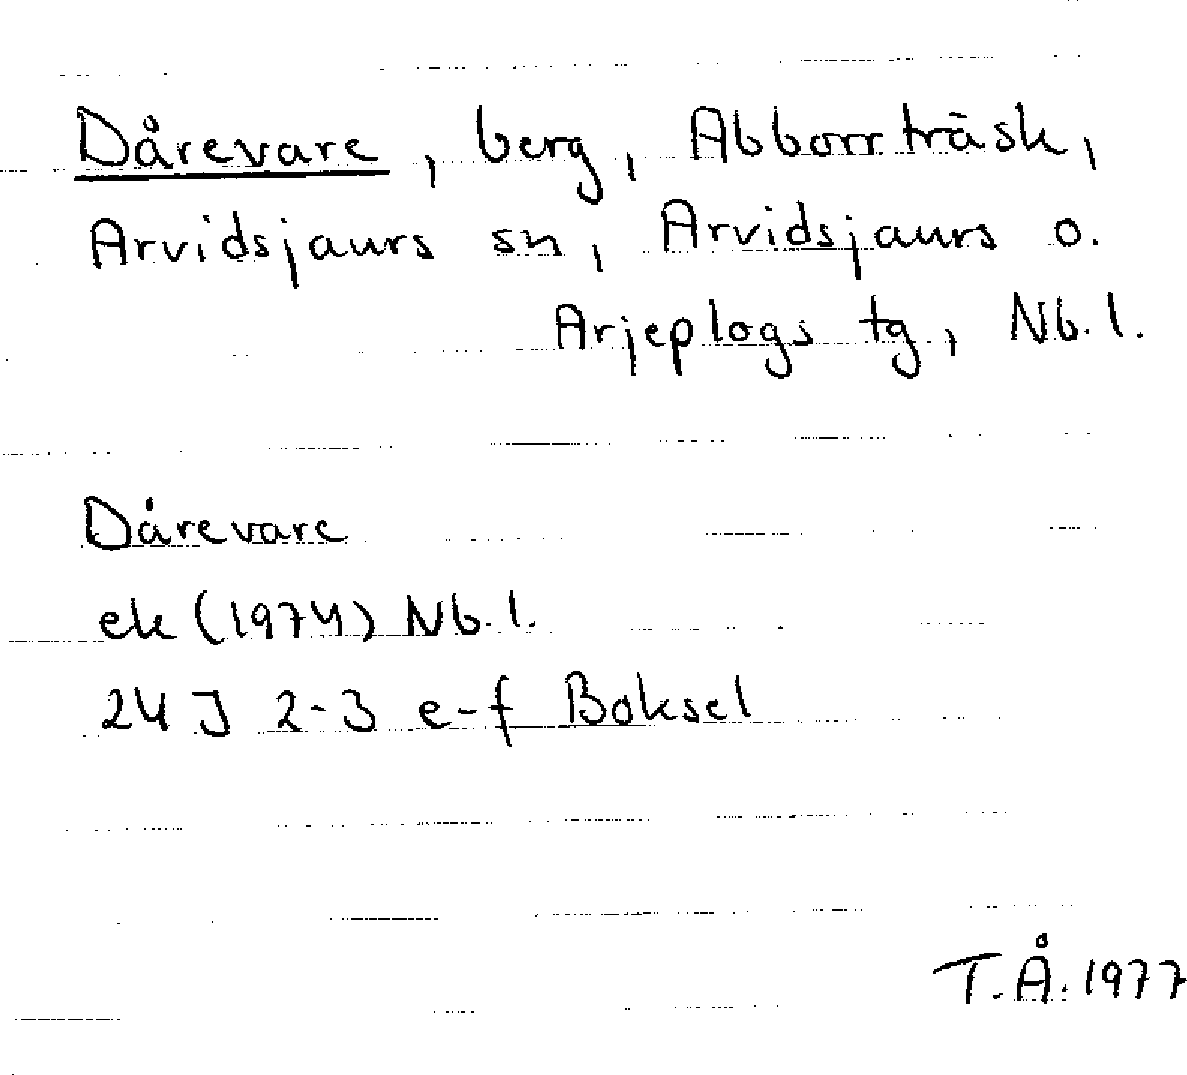 Dårevare, berg, Abborrträsk,
Arvidsjaurs sn, Arvidsjaurs o.
Arjeplogs tg, Nb.l.
Dårevare
ek (1974) Nb.l.
24 J 2-3 e-f Boksel
T.Å. 1977